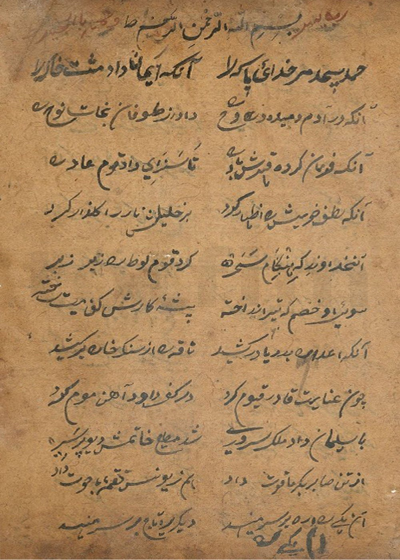 بسم الله الرحمن الرحیم
حمد بیحد مر خدای پاک را آنکه ایمان داد مشت خاک را
آنکه در آدم دمید روح را داد از طوفان نجات نوح را
آنکه فرمان کرد قهرش باد را تا سزای داد قوم عاد را
آنکه لطف خویش را اظهار کرد بر خلیلش نار را گلزار کرد
آن خداوند که هنگام سحر کرد قوم لوط را زیر زبر
سوی او خصم که تیر انداخته پشه کارش کفایت ساخته
آنکه اعدا را بدریا در کشید ناقه را از سنک خارا بر کشید
چون عنایت قادر قیوم کرد در کف داود آهن موم کرد
با سلیمان داد ملک سروری شد مطیع خاتمش دیو پری
از تن صابر بکرما قوت داد هم ز یونس لقمه با حوت داد
آن یکی را اره بر سر می نهد دیکری را تاج بر سر می نهد